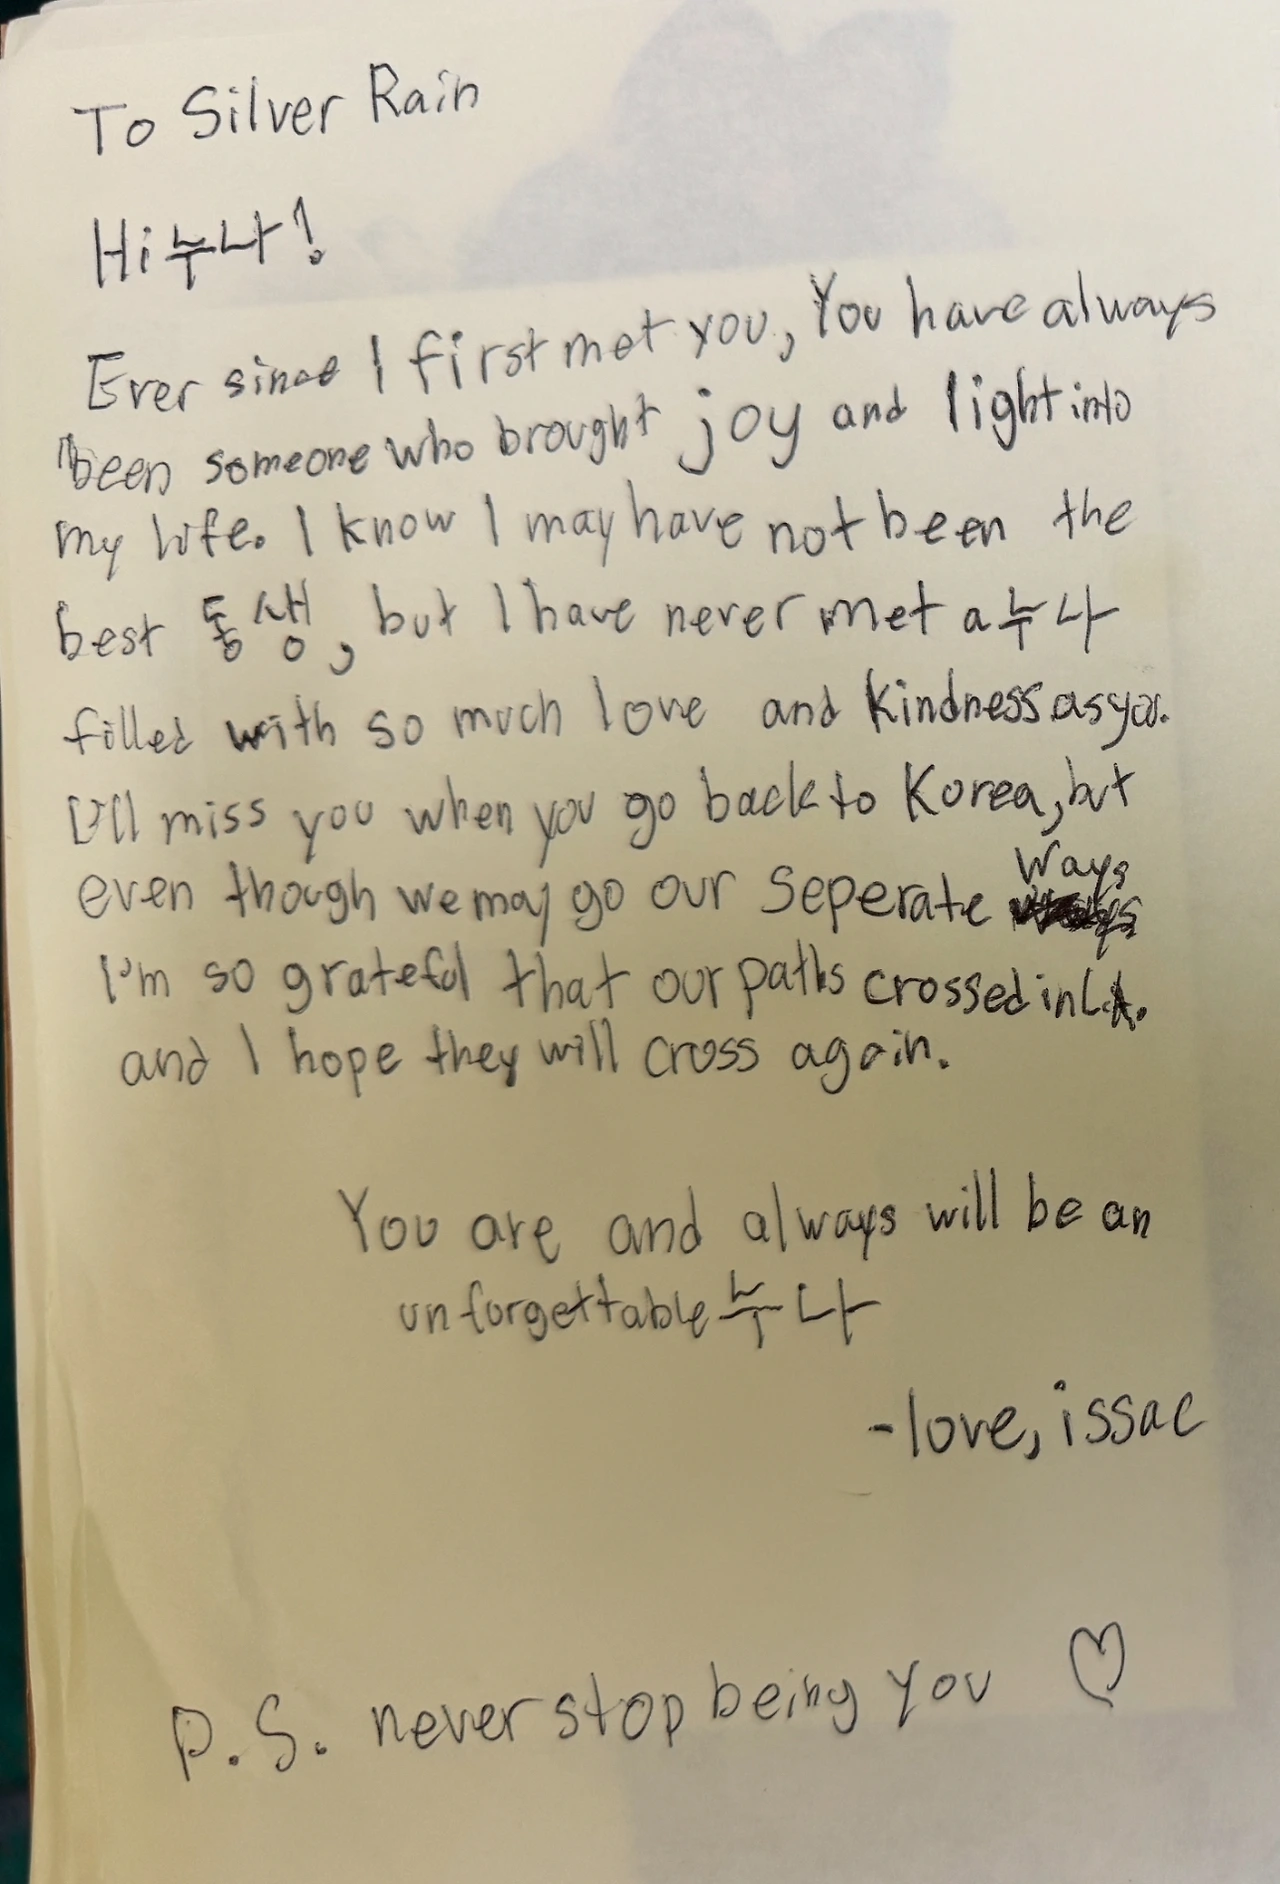 To Silver Rain
Hi 누나!
Ever since I first met you, You have always
been someone who brought joy and light into
my life. I know I may have not been the
best 동생, but I have never met a 누나
filled with so much love and kindness as you.
I'll miss you when you go back to Korea, but
even though we may go our seperate ways
I'm so grateful that our paths crossed in L.A.
and I hope they will cross again.
You are and always will be an
unforgettable 누나
-love, issac
P.S. never stop being you ♡